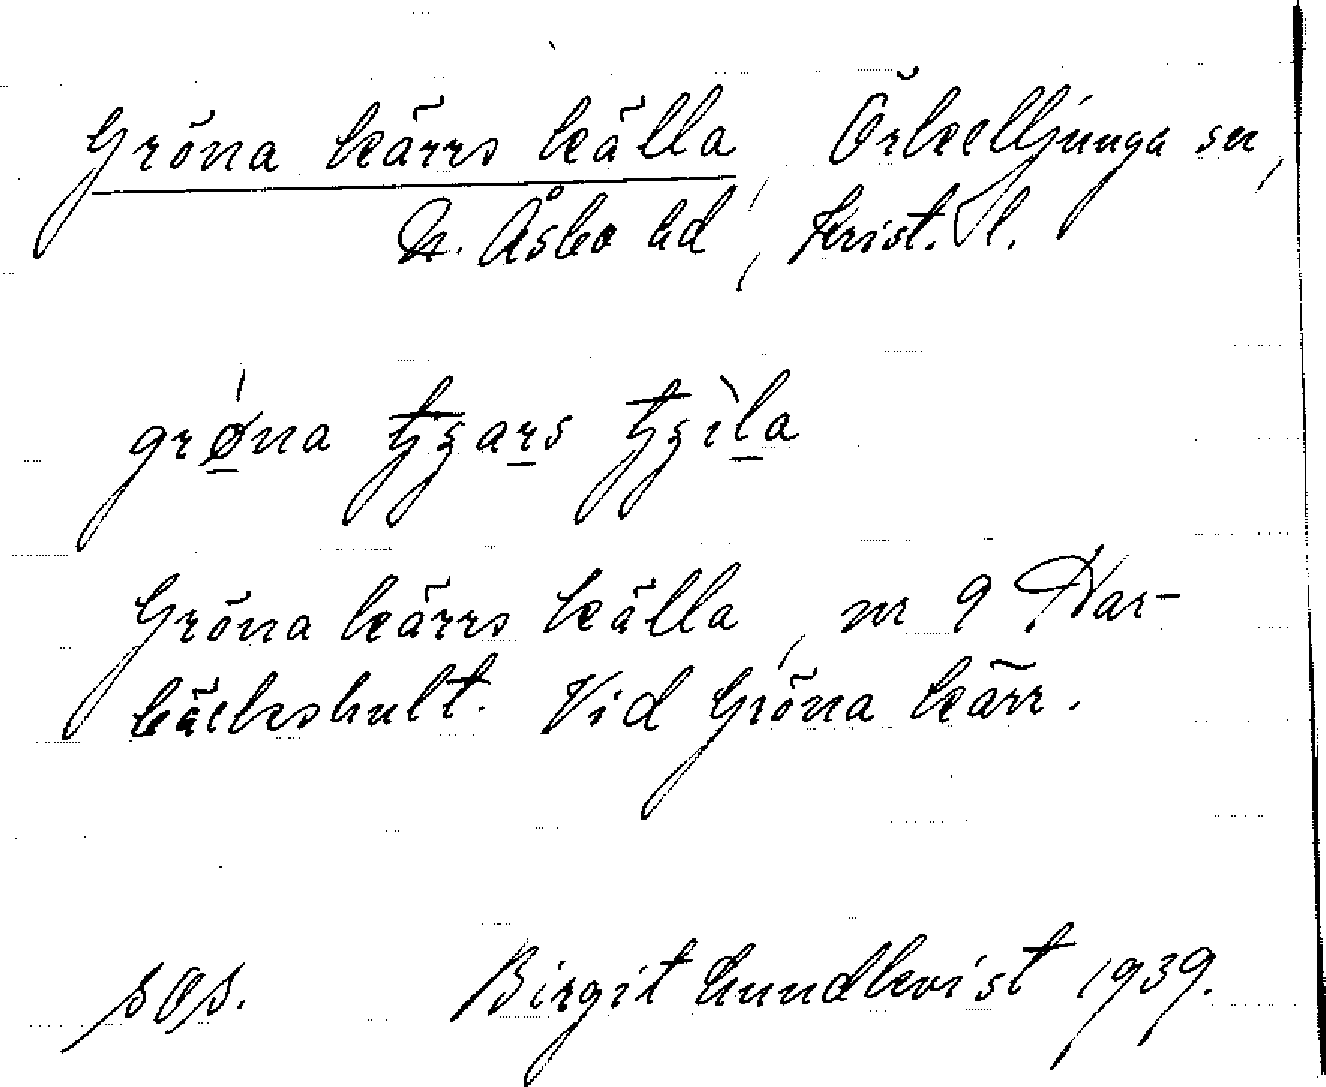 Gröna kärrs källa, Örkelljunga sn,
N. Åsbo hd, Krist. l.
grøna tʒars tʒila
Gröna kärrs källa, nr 9 Har-
bäckshult. Vid Gröna kärr.
sOs. Birgit Lundkvist 1939.